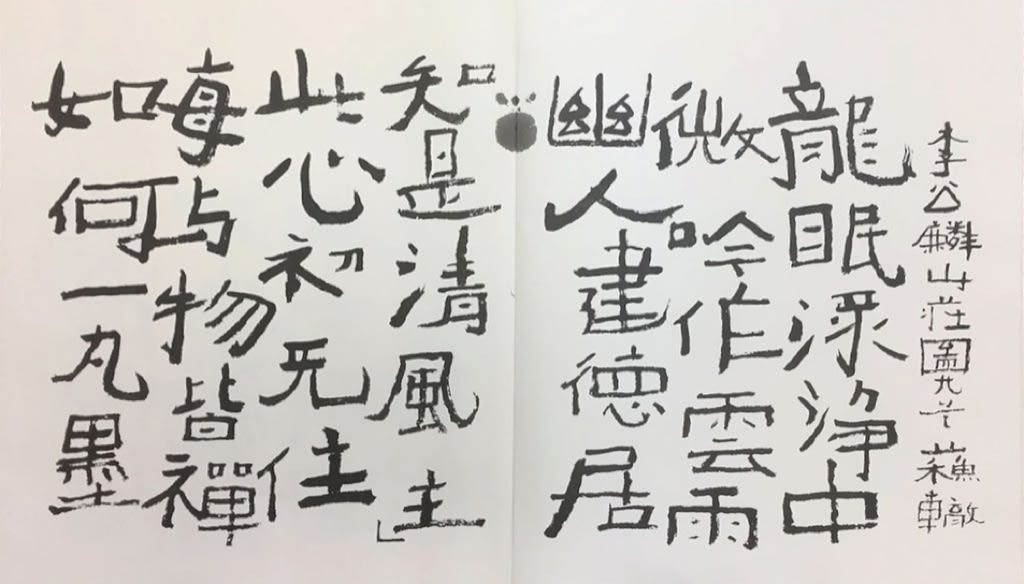 李公麟山莊圖九首 蘇轍
龍眠淥淨中
微吟作雲雨
幽人建德居
知是清風主
此心初无住
每与物皆禪
如何一丸墨